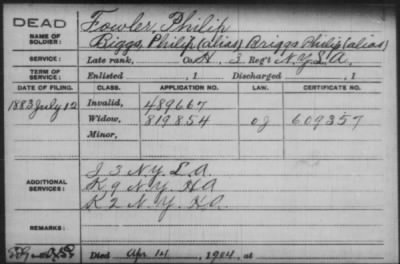 DEAD
Fowler, Philip
NAME OF SOLDIER: Biggs, Philip (alias) Briggs Philip (alias)
SERVICE: Late rank, Co. H. 3 Reg't N.Y.L.A.
TERM OF SERVICE: Enlisted , 1 Discharged , 1
DATE OF FILING. CLASS. APPLICATION NO. LAW. CERTIFICATE NO.
1883 July 12 Invalid, 489667
Widow, 819854 609357
Minor,
ADDITIONAL SERVICES: J 3 N.Y. L A.
K 9 N.Y. HA
K 2 N.Y. HA.
REMARKS:
Died Apr 14, 1904, at